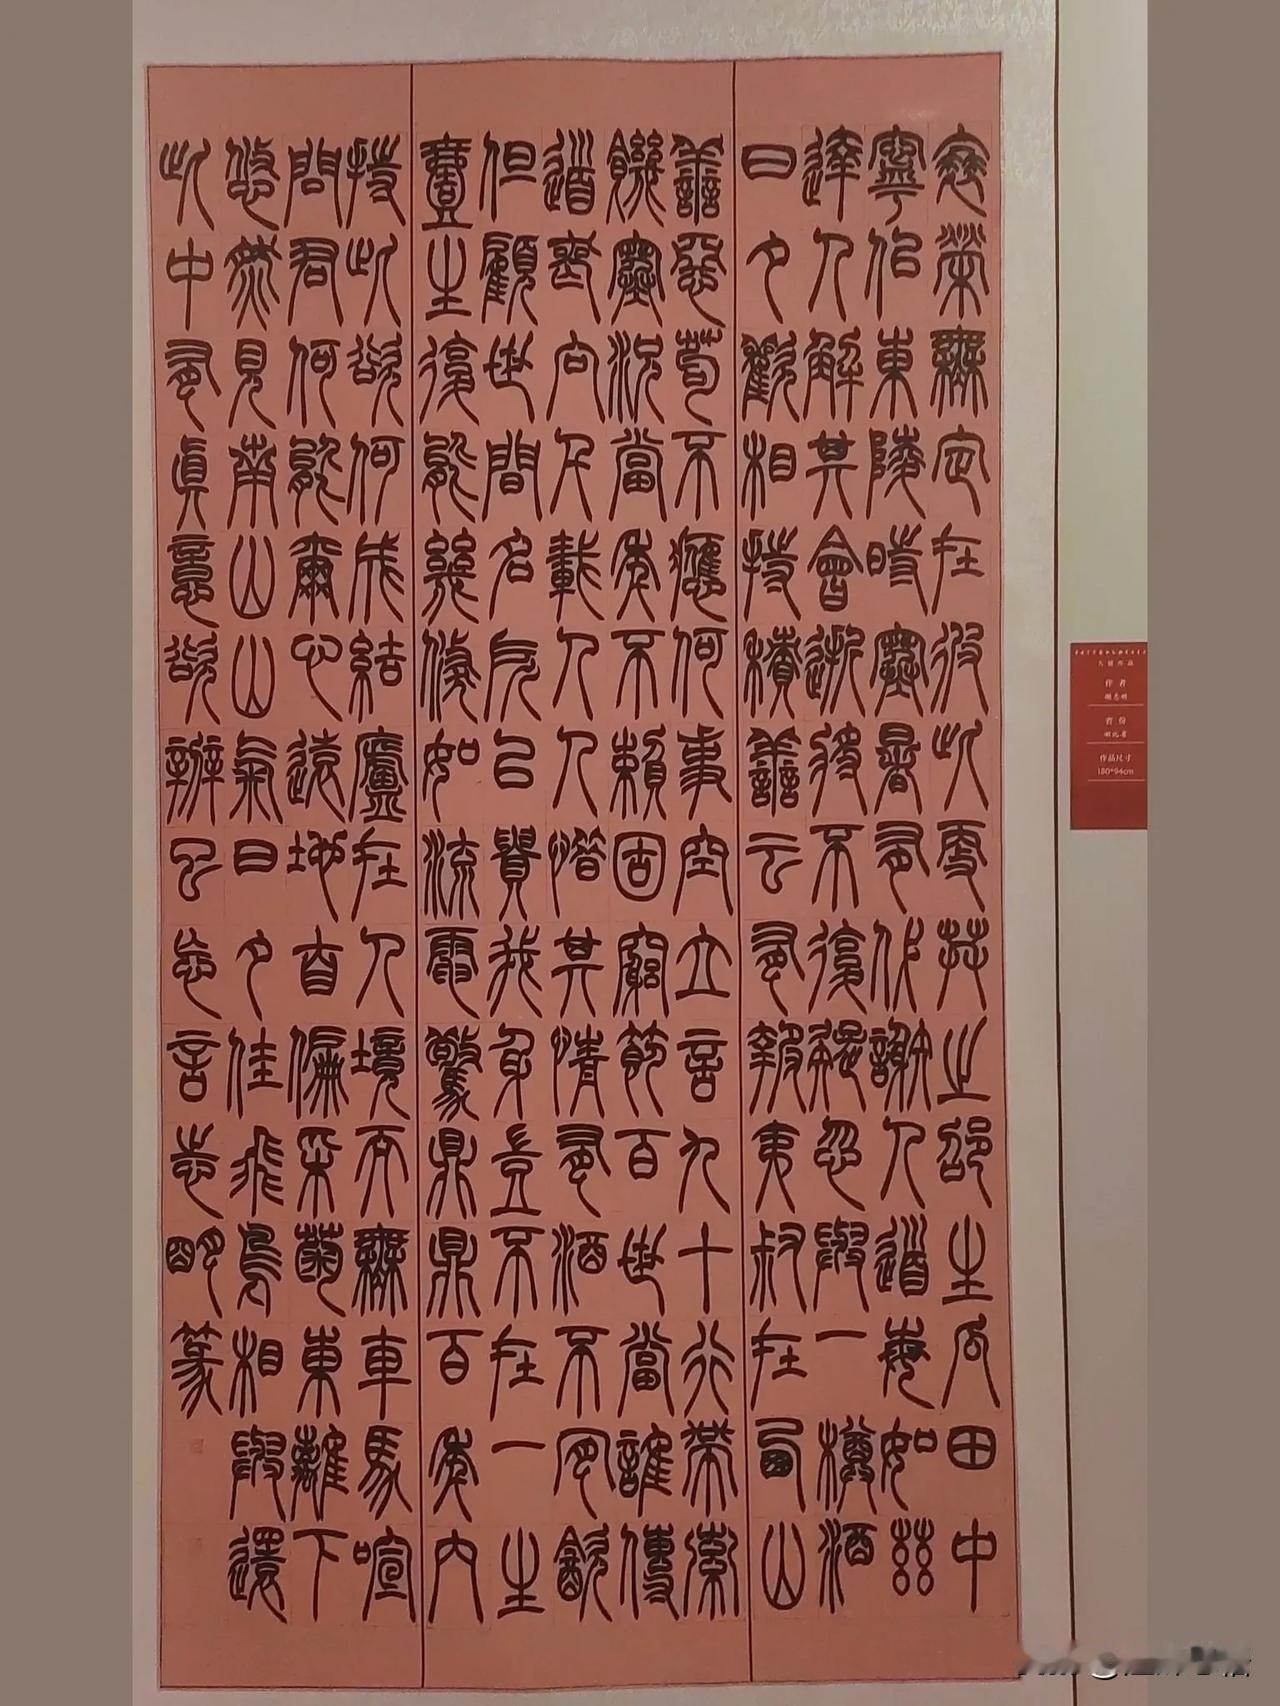 衰榮無定在彼此更共之邵生瓜田中
寧似東陵時寒暑有代謝人道每如茲
達人解其會逝將不復疑忽與一樽酒
日夕歡相持積善云有報夷叔在西山
善惡苟不應何事空立言九十行帶索
飢寒況當年不賴固窮節百世當誰傳
道喪向千載人人惜其情有酒不肯飲
但顧世間名所以貴我身豈不在一生
壹生復能幾倏如流電驚鼎鼎百年內
持此欲何成結廬在人境而無車馬喧
問君何能爾心遠地自偏采菊東籬下
悠然見南山山氣日夕佳飛鳥相與還
此中有真意欲辨已忘言志明篆
入展作品
作者
省份
湖北省
作品尺寸
180*94cm